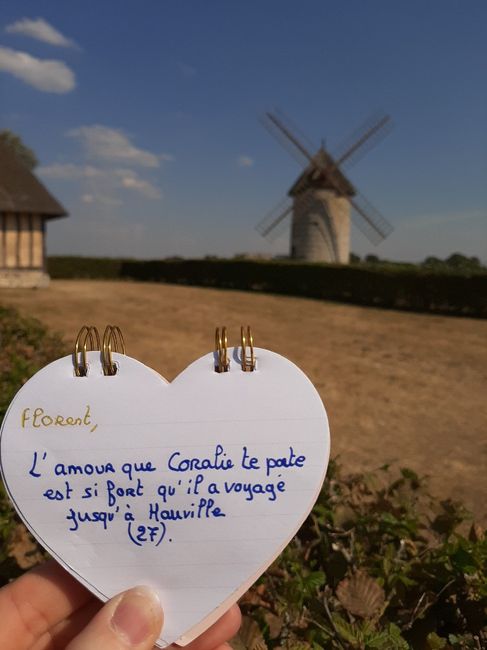 Florent,
L'amour que Coralie te porte
est si fort qu'il a voyagé
jusqu'à Hauville
(27).